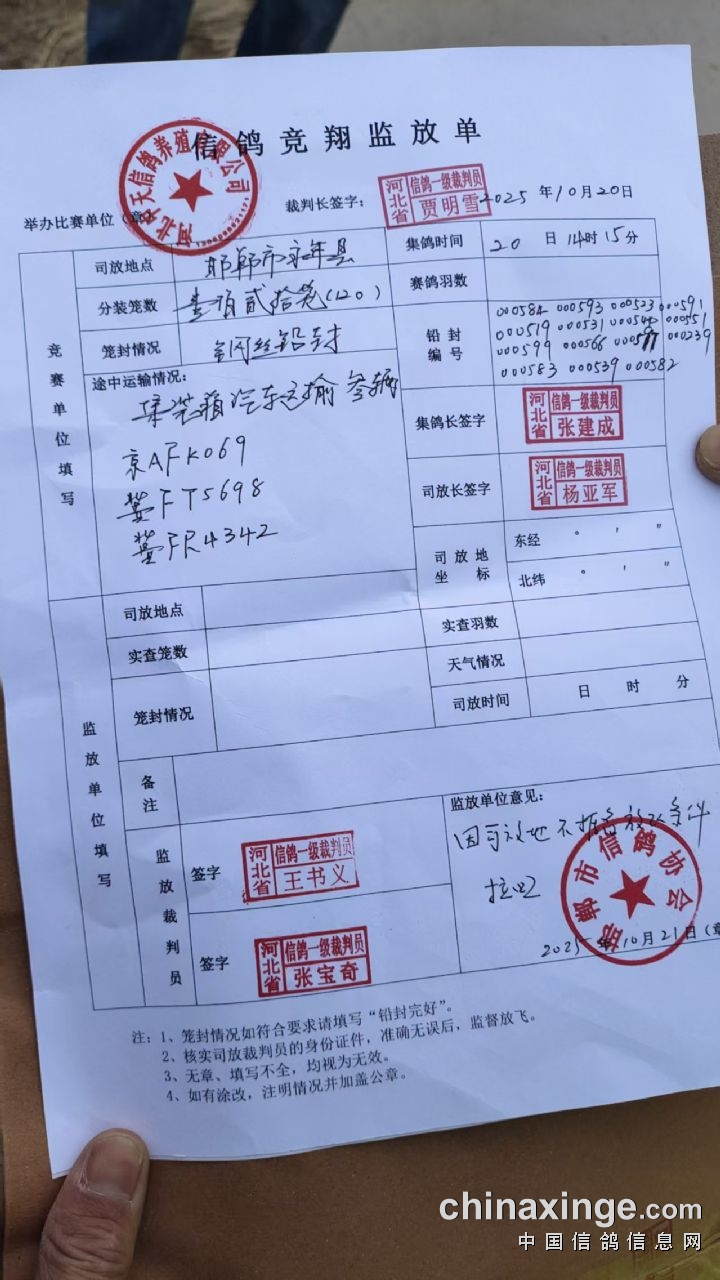 信鸽竞翔监放单
举办比赛单位（章）
裁判长签字：
河北省 信鸽一级裁判员 贾明雪
2025 年10月20日
竞赛单位填写
司放地点 邯郸市永年县
集鸽时间 20 日 14时 15分
分装笼数 壹佰贰拾笼(120)
赛鸽羽数
笼封情况 钢丝铅封
铅封编号
000584 000593 000523 000591
000519 000531
000599 000566 000239
000583 000539 000582
途中运输情况：
集装箱汽车运输 叁辆
京AFK069
冀FT5698
冀FR4342
集鸽长签字 河北省 信鸽一级裁判员 张建成
司放长签字 河北省 信鸽一级裁判员 杨亚军
司放地坐标
东经 ° ′ ″
北纬 ° ′ ″
监放单位填写
司放地点
实查羽数
实查笼数
天气情况
笼封情况
司放时间 日 时 分
备注
监放裁判员
签字 河北省 信鸽一级裁判员 王书义
签字 河北省 信鸽一级裁判员 张宝奇
监放单位意见：
因司放地不 条件
拉回
邯郸市信鸽协会
2025 年10月21日（章
注：1、笼封情况如符合要求请填写“铅封完好”。
2、核实司放裁判员的身份证件，准确无误后，监督放飞。
3、无章、填写不全，均视为无效。
4、如有涂改，注明情况并加盖公章。
chinaxinge.com
中国信鸽信息网